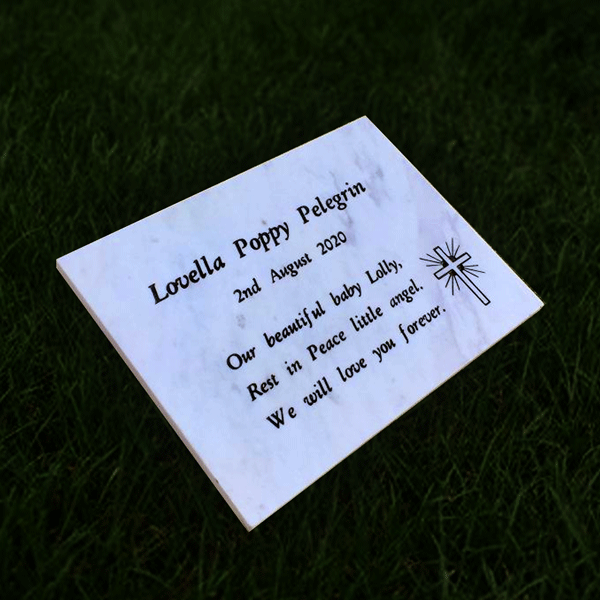 Lovella Poppy Pelegrin
2nd August 2020
Our beautiful baby Lolly,
Rest in Peace little angel.
We will love you forever.